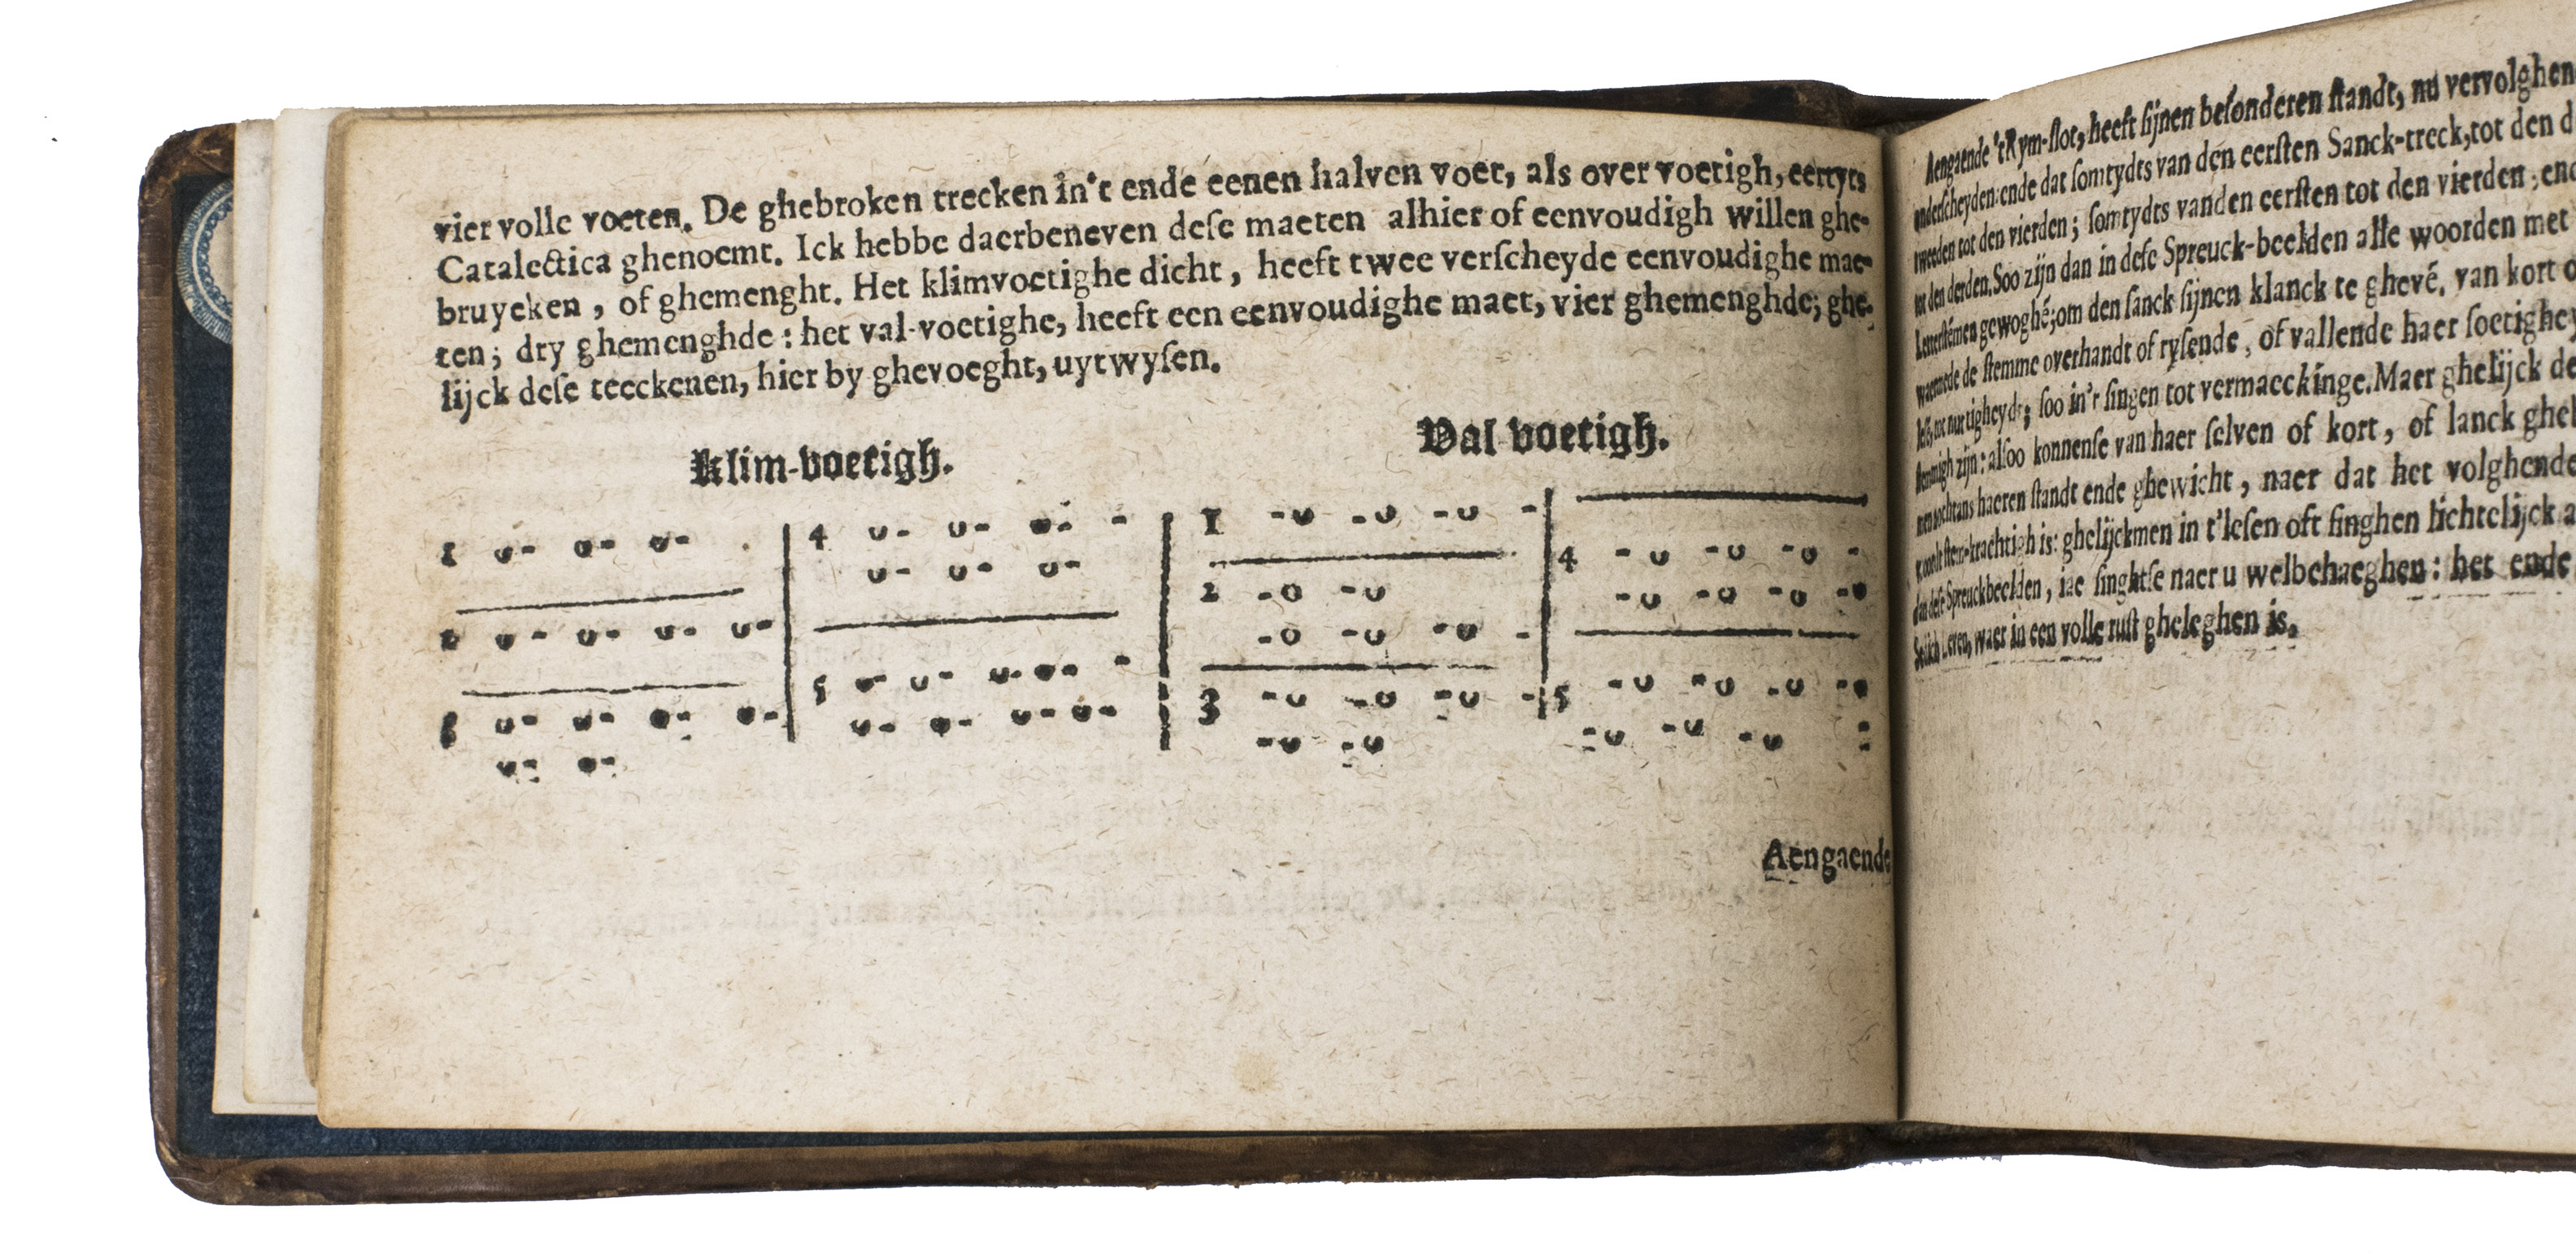 vier volle voeten. De ghebroken trecken in't ende eenen halven voet, als over voetigh, eertyts
Catalectica ghenoemt. Ick hebbe daerbeneven dese maeten alhier of eenvoudigh willen ghe-
bruycken, of ghemenght. Het klimvoetighe dicht, heeft twee verscheyde eenvoudighe mae-
ten; dry ghemenghde: het val-voetighe, heeft een eenvoudighe maet, vier ghemenghde; ghe-
lijck dese teeckenen, hier by ghevoeght, uytwysen.
Klim-voetigh.
1 ᴗ- ᴗ- ᴗ-
2 ᴗ- ᴗ- ᴗ- ᴗ-
3 ᴗ- ᴗ- ᴗ- ᴗ-
ᴗ- ᴗ-
4 ᴗ- ᴗ- ᴗ- -
ᴗ- ᴗ- ᴗ-
5 ᴗ- ᴗ- ᴗ- ᴗ- -
ᴗ- ᴗ- ᴗ- ᴗ-
Val voetigh.
1 -ᴗ -ᴗ -ᴗ -
2 -ᴗ -ᴗ
-ᴗ -ᴗ -ᴗ -
3 -ᴗ -ᴗ -ᴗ -
-ᴗ -ᴗ
4 -ᴗ -ᴗ -ᴗ -
-ᴗ -ᴗ -ᴗ -ᴗ
5 -ᴗ -ᴗ -ᴗ -ᴗ
-ᴗ -ᴗ -ᴗ -
Aengaende
Aengaende 't Rym-slot, heeft sijnen besonderen standt, nu vervolghen
onderscheyden: ende dat somtydts van den eersten Sanck-treck, tot den d
tweeden tot den vierden; somtydts vanden eersten tot den vierden, end
tot den derden. Soo zijn dan in dese Spreuck-beelden alle woorden met
gewoghé; om den sanck sijnen klanck te ghevé, van kort o
waermede de stemme overhandt of rysende, of vallende haer soetighey
soo in't singen tot vermaeckinge. Maer ghelijck de
zijn: alsoo konnense van haer selven of kort, of lanck ghel
nochtans haeren standt ende ghewicht, naer dat het volghende
is: ghelijckmen in t'lesen oft singhen lichtelijck a
dan dese Spreuckbeelden, singhtse naer u welbehaeghen: het ende
waer in een volle rust gheleghen is.